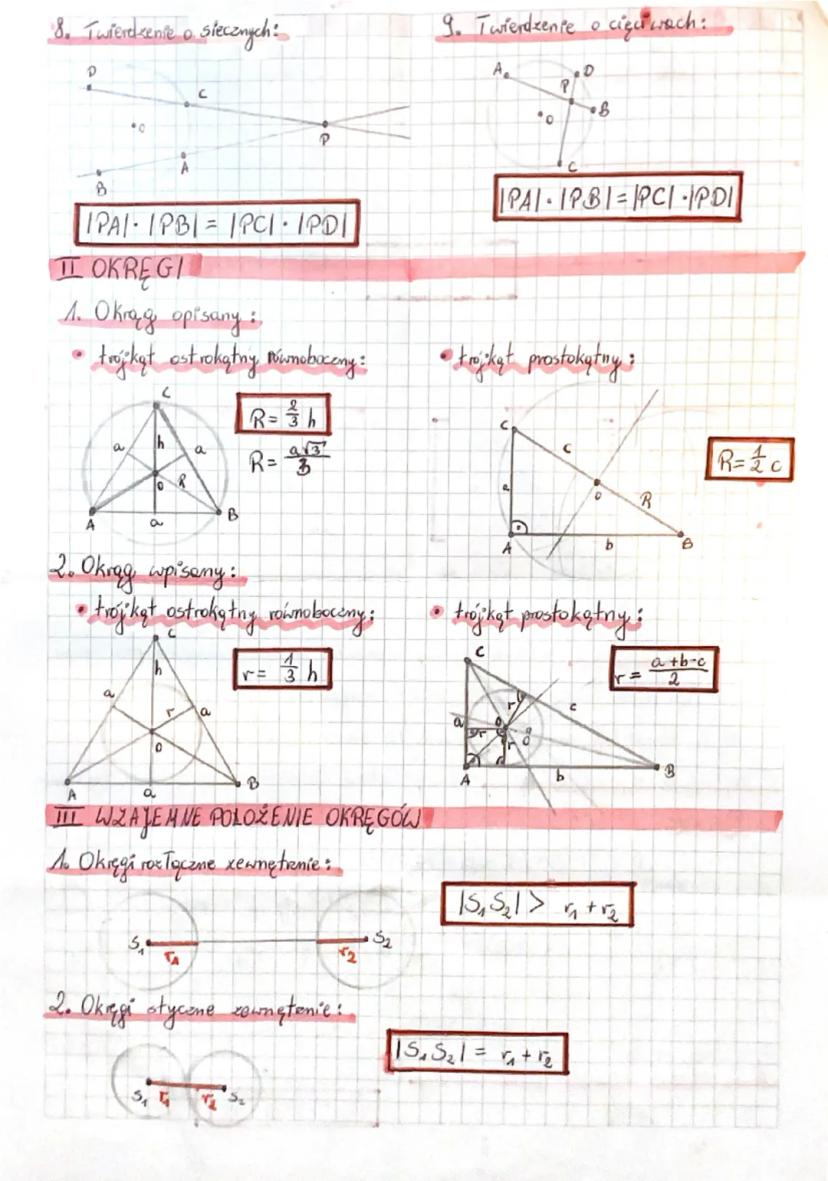 8. Twierdzenie o siecznych:
D
C
o
P
A
B
|PA| · |PB| = |PC| · |PD|
9. Twierdzenie o cięciwach:
A
D
P
B
o
C
|PA| · |PB| = |PC| · |PD|
II OKRĘGI
1. Okrąg opisany:
• trójkąt ostrokątny równoboczny:
C
a
h
a
o
R
A
a
B
R = 2/3 h
R = a√3/3
• trójkąt prostokątny:
C
c
a
o
R
A
b
B
R = 1/2 c
2. Okrąg wpisany:
• trójkąt ostrokątny równoboczny:
C
h
a
r
a
o
A
a
B
r = 1/3 h
• trójkąt prostokątny:
C
r
c
a
r
o
r
A
b
B
r = a+b-c/2
III WZAJEMNE POŁOŻENIE OKRĘGÓW
1. Okręgi rozłączne zewnętrznie:
S₁
r₁
r₂
S₂
|S₁S₂| > r₁ + r₂
2. Okręgi styczne zewnętrznie:
S₁
r₁
r₂
S₂
|S₁S₂| = r₁ + r₂